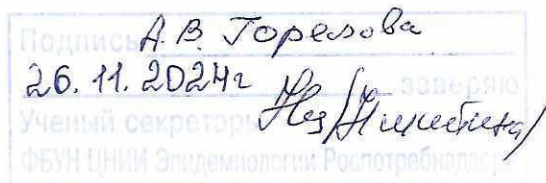 Подпись А.В. Горелова
26.11.2024г заверяю
Ученый секретарь (Никитина)
ФБУН ЦНИИ Эпидемиологии Роспотребнадзора